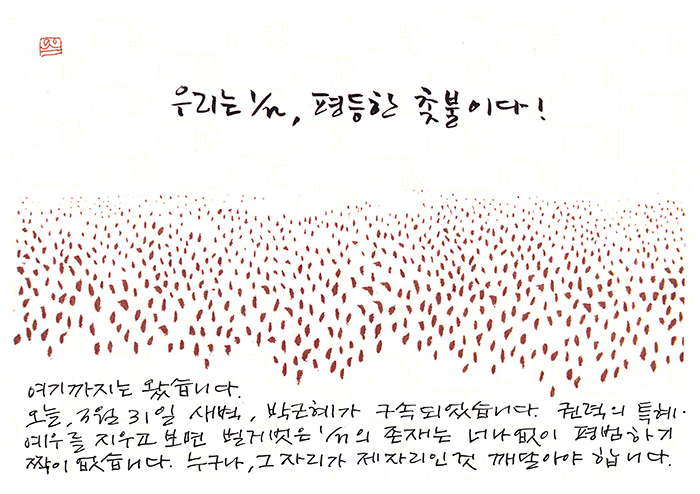 우리는 1/n, 평등한 촛불이다!
여기까지는 왔습니다.
오늘, 3월 31일 새벽, 박근혜가 구속되었습니다. 권력의 특혜·
예우를 지우고 보면 벌거벗은 1/n의 존재는 너나없이 평범하기
짝이 없습니다. 누구나, 그 자리가 제자리인 것 깨달아야 합니다.